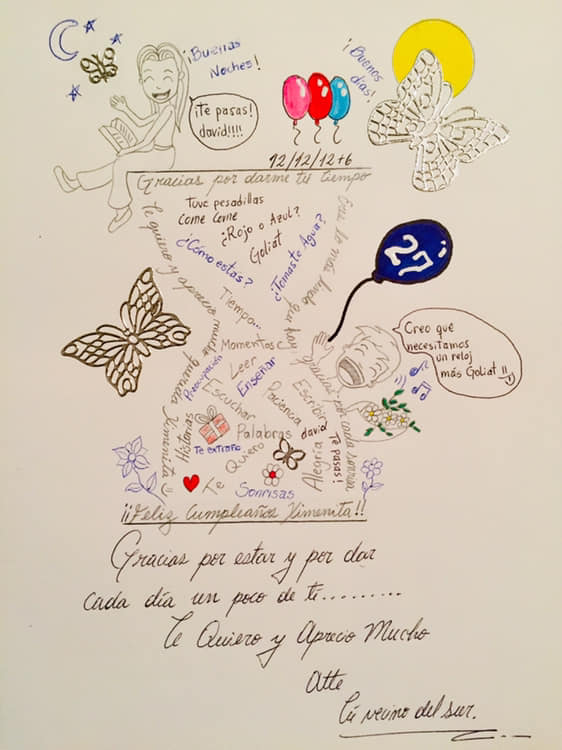 ¡Buenas
Noches!
¡Te pasas!
david!!!!
¡Buenos
días!
12/12/12+6
Gracias por darme tu tiempo
Tuve pesadillas
Come Come
¿Rojo o Azul?
Goliat
¿Cómo estás?
¿Tomaste Agua?
Te quiero y aprecio mucho querida Ximenita
Eres lo más lindo que hay gracias por cada sonrisa
27
Tiempo...
Momentos
Leer
Preocupación
Enseñar
Escuchar
Paciencia
Escribir
Historias
Palabras
david
Te extraño
Te Quiero
Alegría
Te pasas!
Sonrisas
Creo que
necesitamos
un reloj
más Goliat!!
¡¡Feliz Cumpleaños Ximenita!!
Gracias por estar y por dar
cada día un poco de ti.........
Te Quiero y Aprecio Mucho
Atte
Tú vecino del sur.